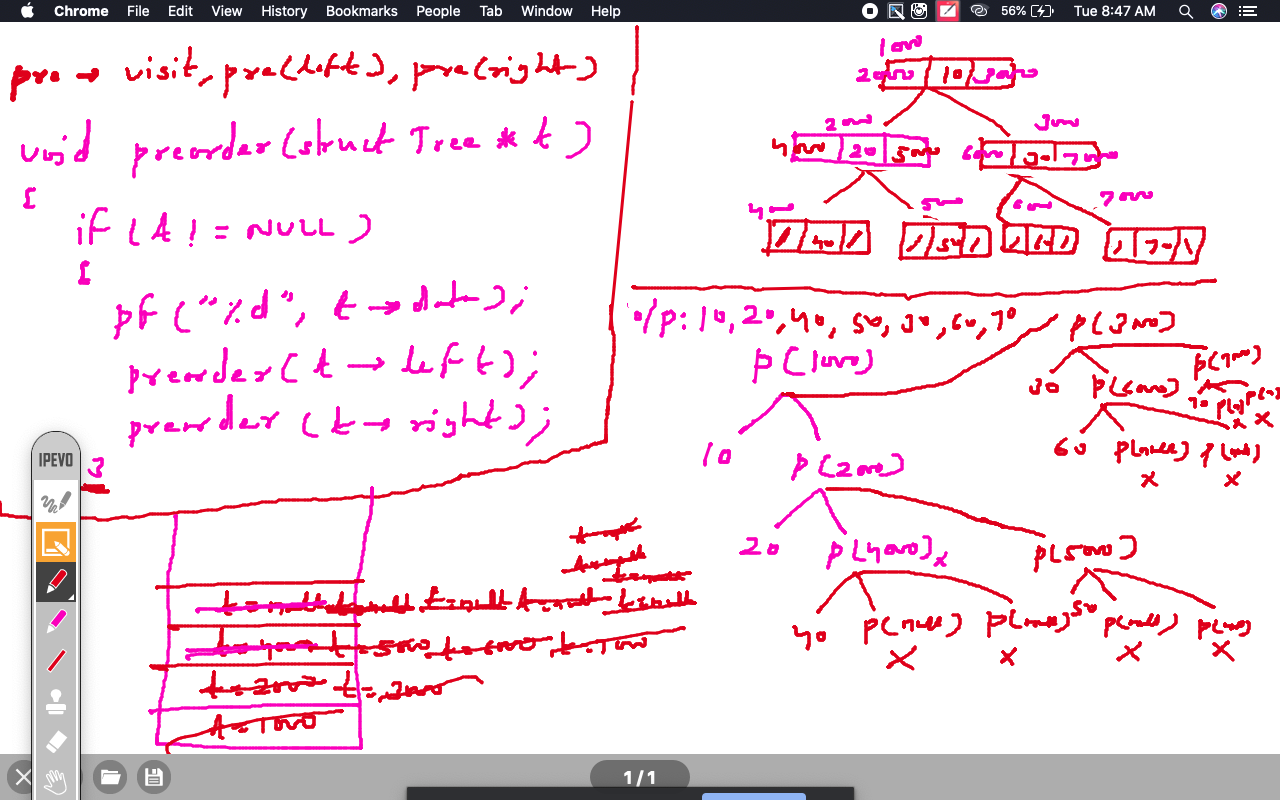 Chrome File Edit View History Bookmarks People Tab Window Help 56% Tue 8:47 AM
pre → visit, pre(left), pre(right)
void preorder(struct Tree * t)
{
if (t != NULL)
{
pf ("%d", t → data);
preorder(t → left);
preorder (t → right);
}
1000
2000 10 3000
2000 3000
4000 20 5000 6000 30 7000
400 500 600 7000
/ 40 / / 50 / / 60 / / 70 \
o/p: 10, 20, 40, 50, 30, 60, 70
p(1000)
10 p(2000)
20 p(4000) x p(5000)
40 p(null) p(null) 50 p(null) p(null)
x x x x
p(3000)
30 p(6000) p(7000)
70 p(n) p(n)
x x
60 p(null) p(null)
x x
t=null t=null t=null t=null t=null
t=4000 t=5000 t=6000 t=7000
t=2000 t=3000
t=1000
IPEVO
1/1